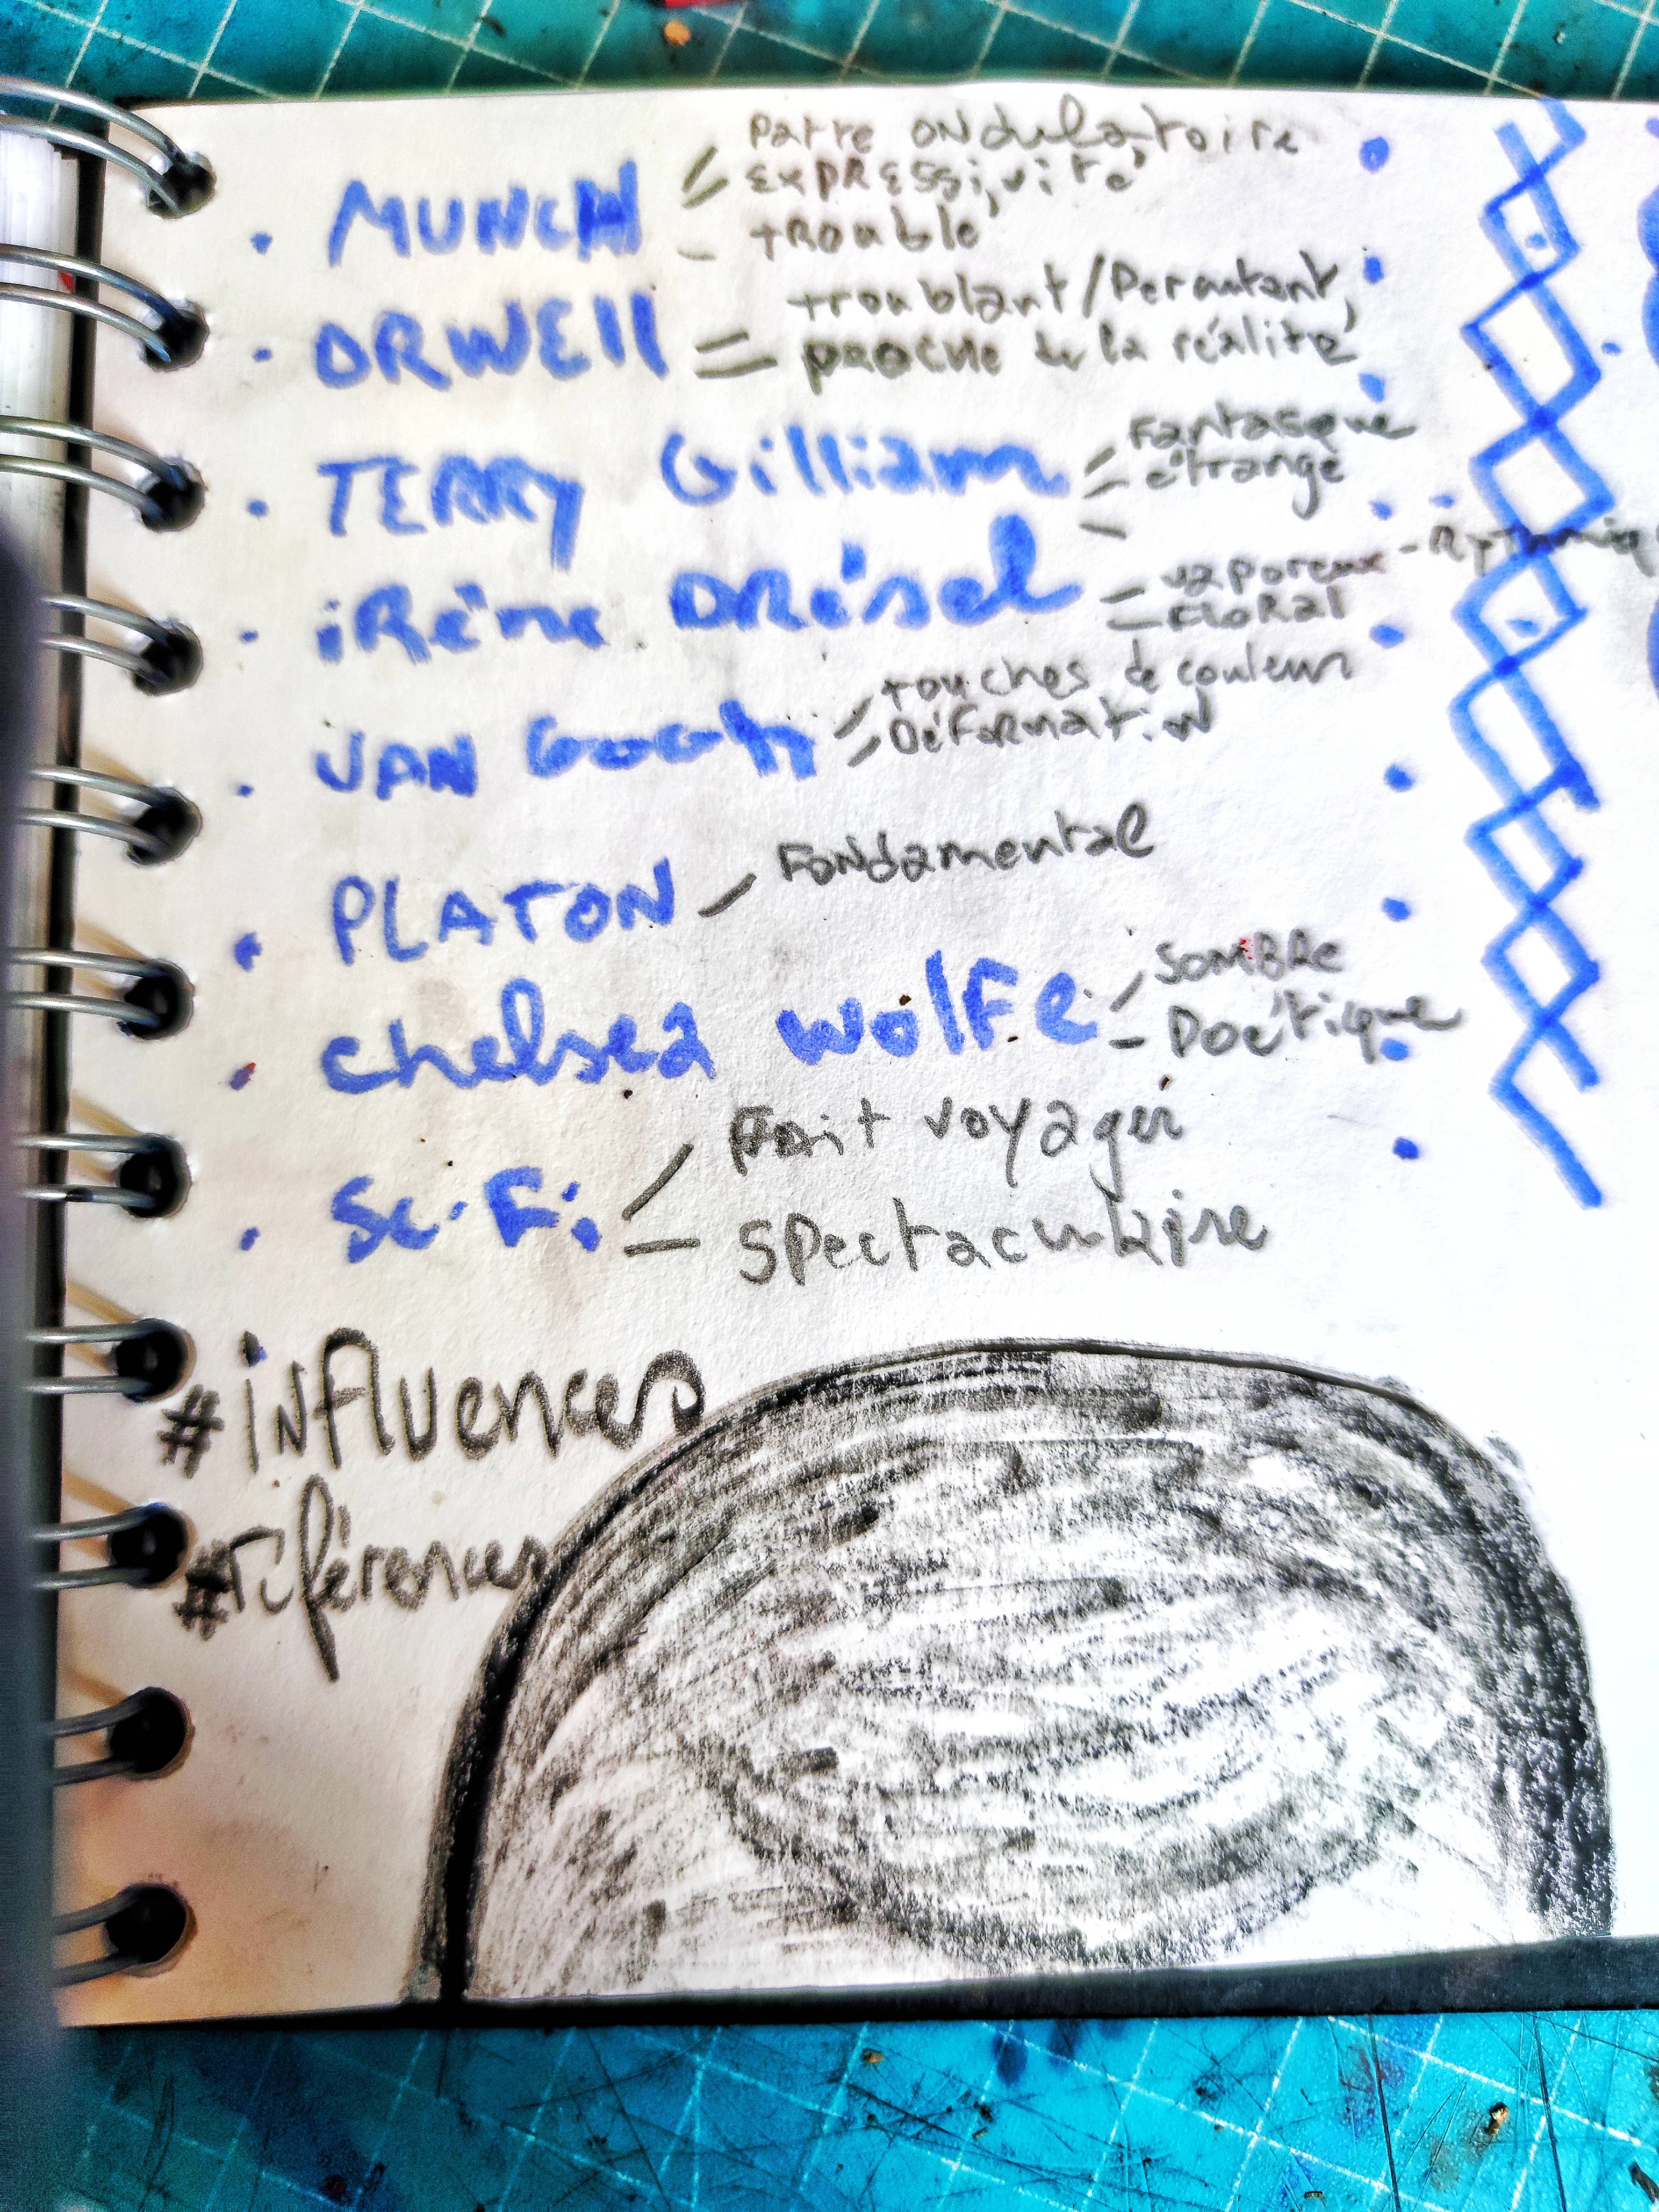 Patte ondulatoire
• MUNCH = Expressivité
- trouble
troublant/Percutant,
• ORWEll = proche de la réalité
Fantasque
• TERRY Gilliam = étrange
• irène DRésel - vaporeux - Rythmiq
- Floral
touches de couleur
• VAN GOGH = Déformation
• PLATON - Fondamental
• Chelsea wolfe - SOMBRe
- Poétique
Fait voyager
• Sc-Fi - Spectaculaire
#influences
#références